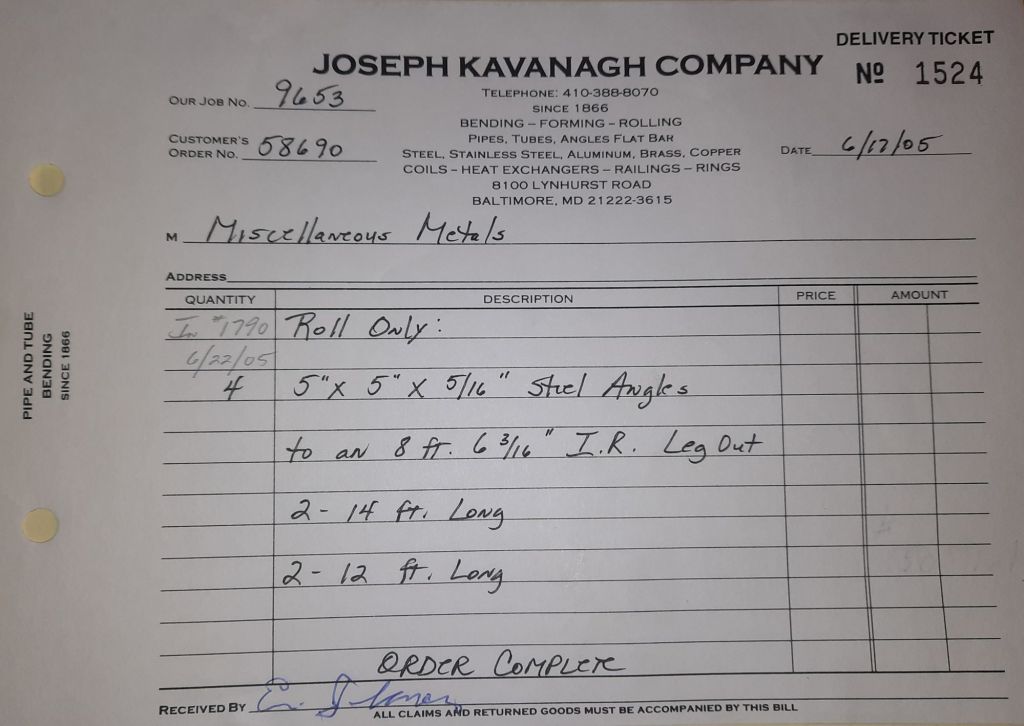 DELIVERY TICKET
JOSEPH KAVANAGH COMPANY
Nº 1524
OUR JOB NO. 9653
TELEPHONE: 410-388-8070
SINCE 1866
BENDING – FORMING – ROLLING
CUSTOMER'S
ORDER NO. 58690
PIPES, TUBES, ANGLES FLAT BAR
STEEL, STAINLESS STEEL, ALUMINUM, BRASS, COPPER
DATE 6/17/05
COILS – HEAT EXCHANGERS – RAILINGS – RINGS
8100 LYNHURST ROAD
BALTIMORE, MD 21222-3615
M Miscellaneous Metals
ADDRESS
QUANTITY DESCRIPTION PRICE AMOUNT
In #1790 Roll Only:
6/22/05
4 5" X 5" X 5/16" Steel Angles
to an 8 ft. 6 3/16" I.R. Leg Out
2 - 14 ft. Long
2 - 12 ft. Long
ORDER COMPLETE
RECEIVED BY
ALL CLAIMS AND RETURNED GOODS MUST BE ACCOMPANIED BY THIS BILL
PIPE AND TUBE
BENDING
SINCE 1866